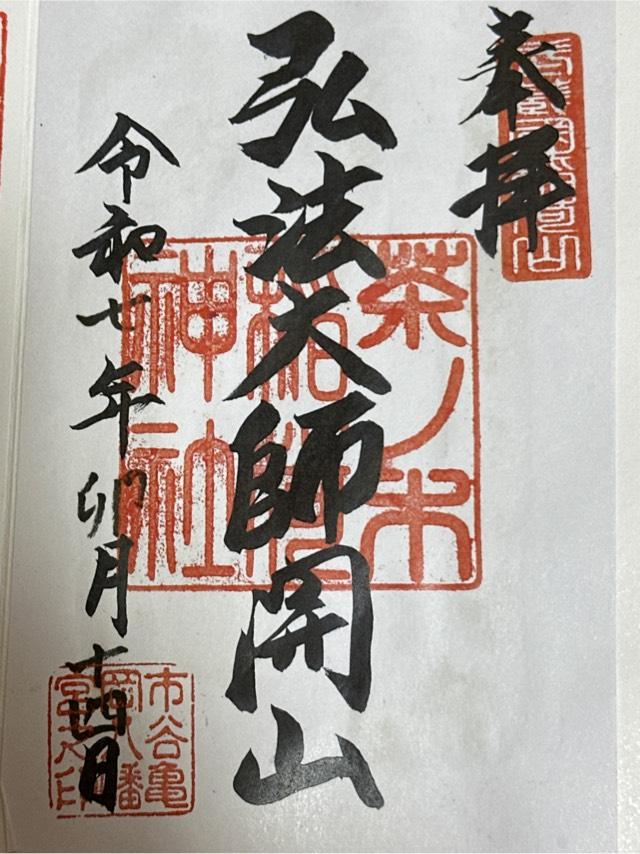 奉拝
弘法大師開山
令和七年卯月十四日
茶ノ木
稲荷
神社
市谷亀
岡八幡
宮之印